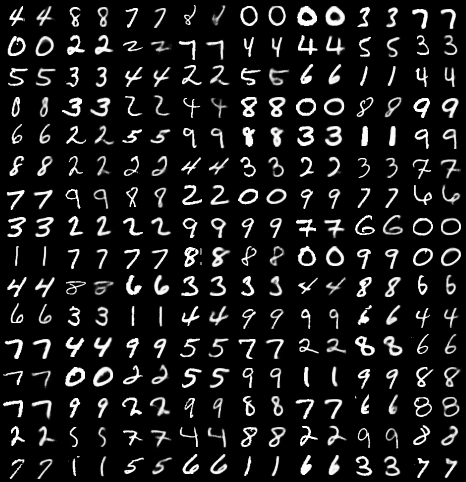 4 4 8 8 7 7 8 8 0 0 0 0 3 3 7 7
0 0 2 2 2 2 7 7 4 4 4 4 5 5 3 3
5 5 3 3 4 4 2 2 5 5 6 6 1 1 4 4
8 8 3 3 2 2 4 4 8 8 0 0 8 8 9 9
6 6 2 2 5 5 9 9 8 8 3 3 1 1 9 9
8 8 2 2 2 2 4 4 3 3 2 2 3 3 7 7
7 7 9 9 8 8 2 2 0 0 9 9 7 7 6 6
3 3 2 2 2 2 9 9 9 9 7 7 6 6 0 0
1 1 7 7 7 7 8 8 8 8 0 0 9 9 0 0
4 4 8 8 6 6 3 3 3 3 4 4 8 8 6 6
6 6 3 3 1 1 4 4 9 9 9 9 6 6 4 4
7 7 4 4 9 9 5 5 7 7 2 2 8 8 6 6
7 7 0 0 2 2 5 5 9 9 1 1 9 9 8 8
7 7 9 9 2 2 9 9 8 8 7 7 6 6 8 8
2 2 5 5 7 7 4 4 8 8 2 2 9 9 8 8
7 7 1 1 5 5 6 6 1 1 6 6 3 3 7 7